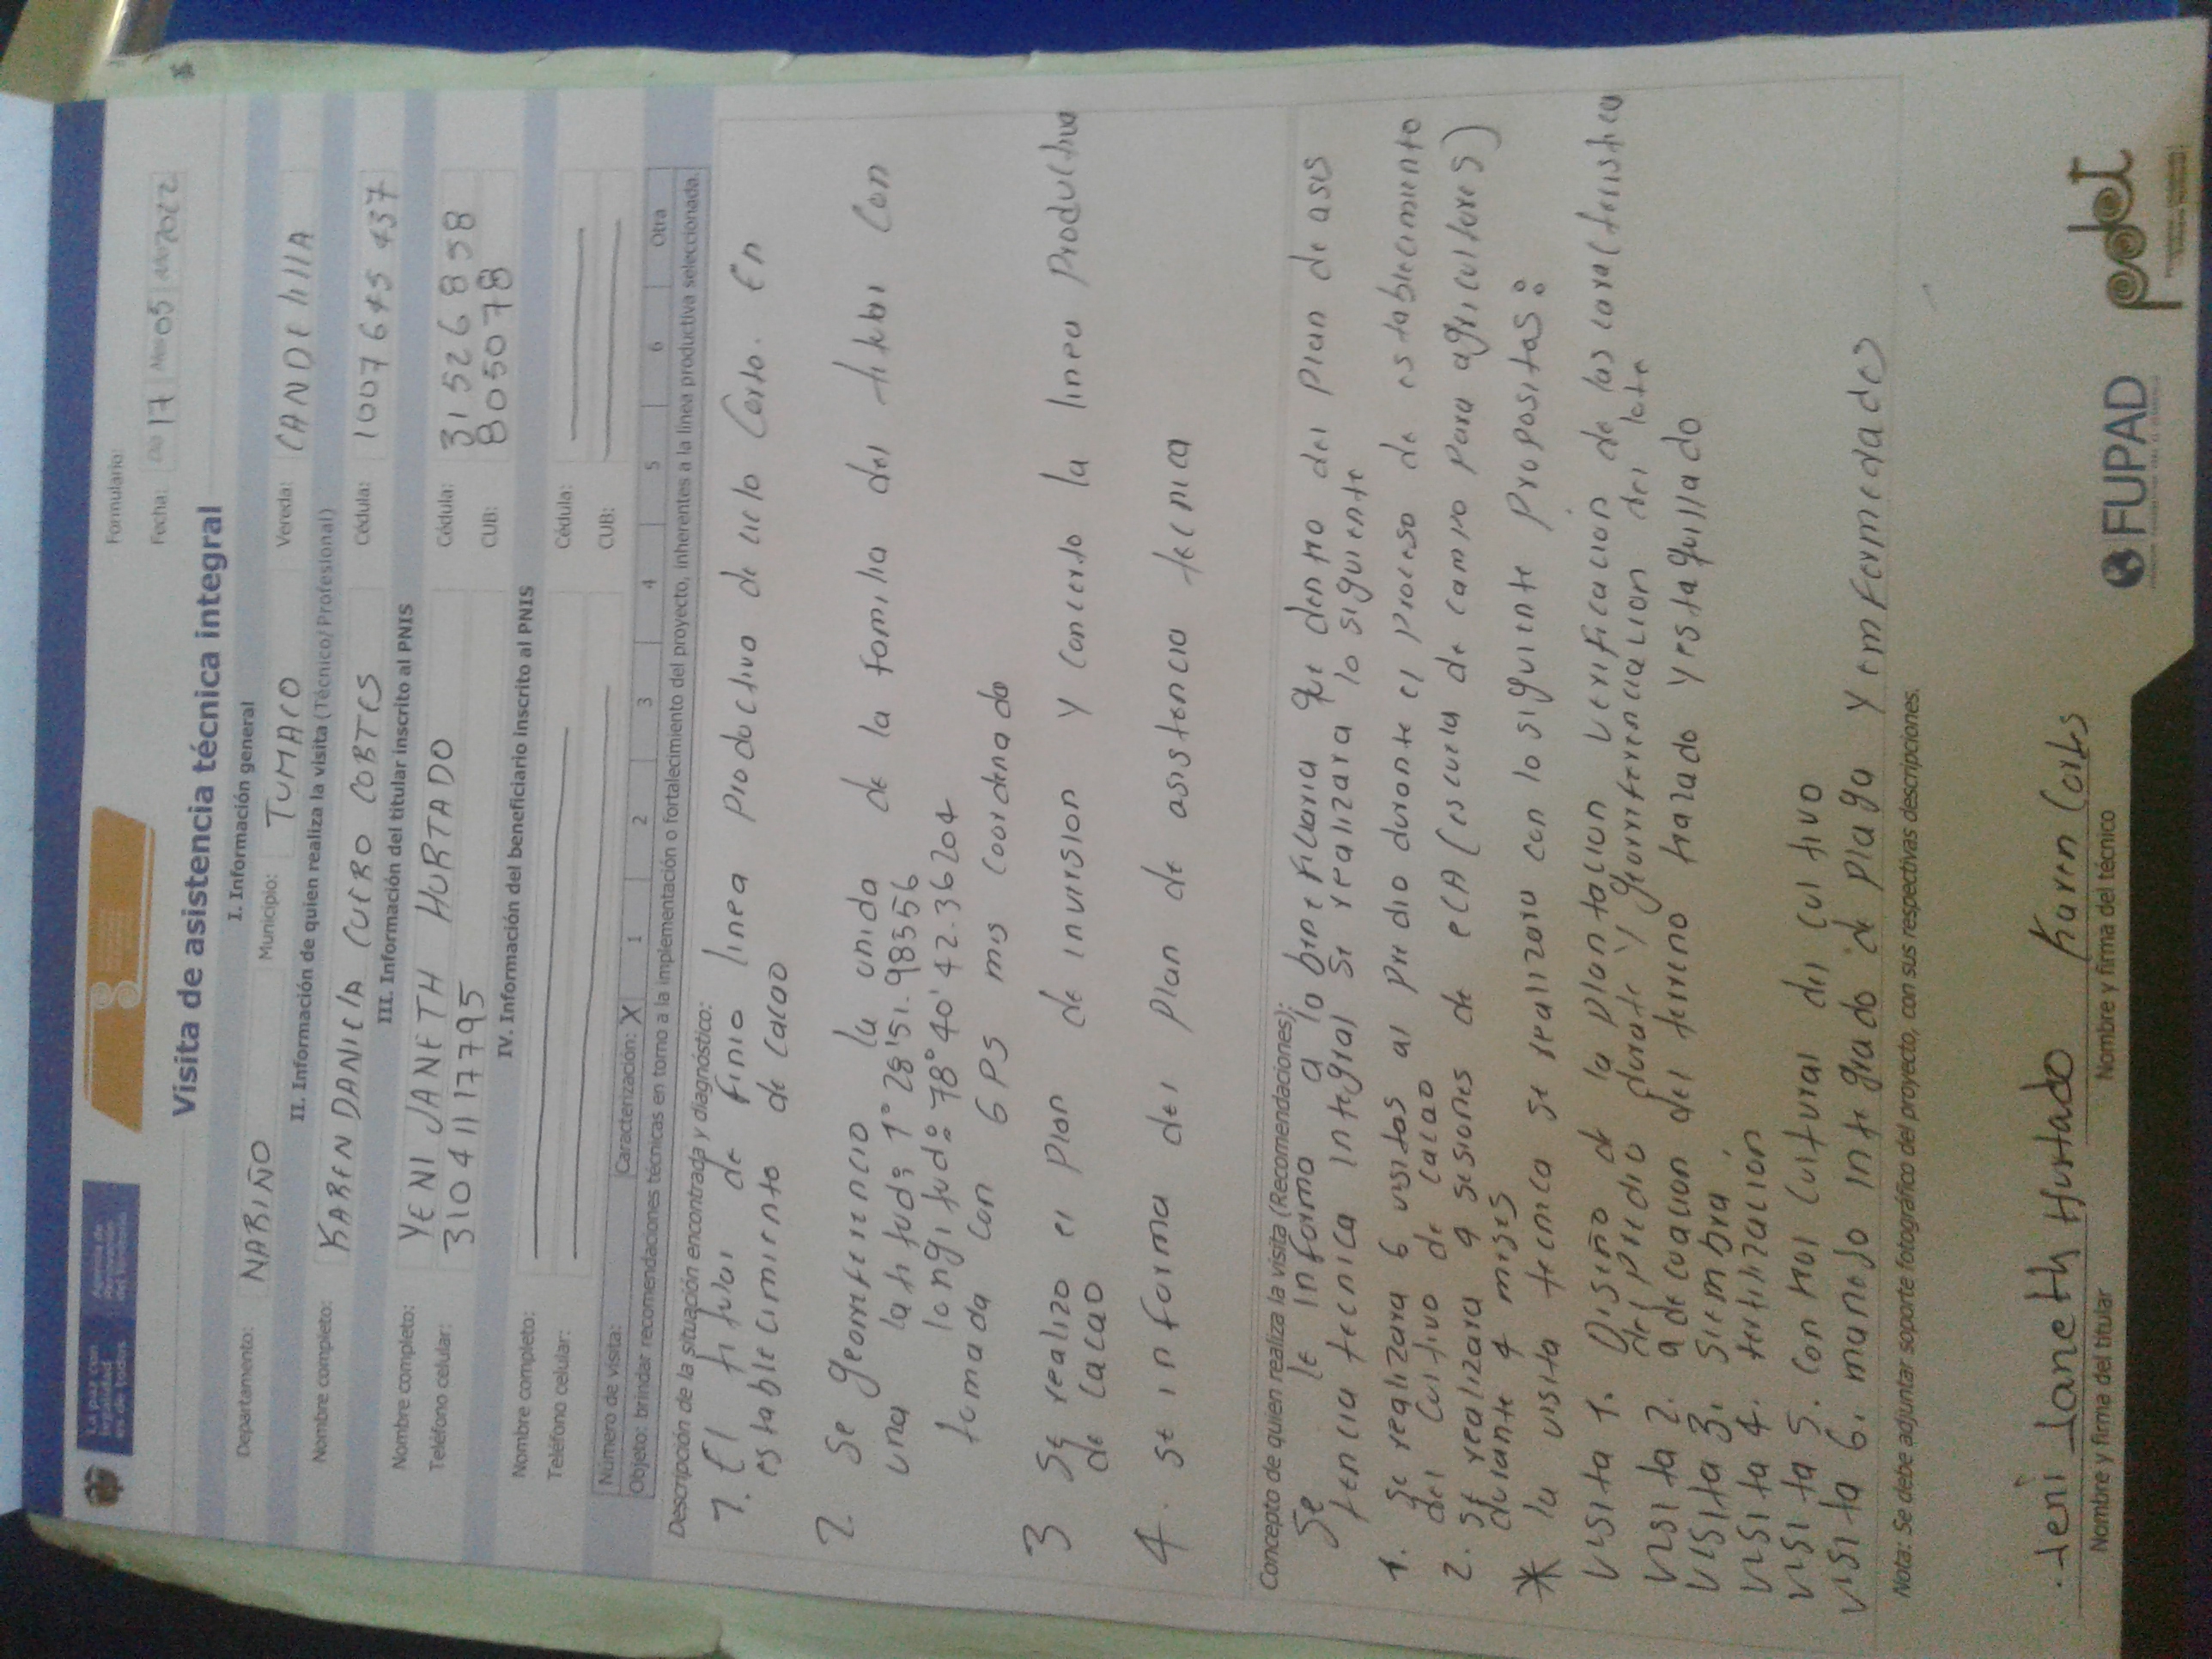 La paz con legalidad es de todos
Formulario:
Fecha: Día 17 Mes 05 Año 2022
Visita de asistencia técnica integral
I. Información general
Departamento: NARIÑO Municipio: TUMACO Vereda: CANDElIIA
II. Información de quien realiza la visita (Técnico/Profesional)
Nombre completo: KAREN DANIElA CUERO CORTES Cédula: 1007645437
III. Información del titular inscrito al PNIS
Nombre completo: YENI JANETH HURTADO Cédula: 31526858
Teléfono celular: 3104117795 CUB: 805078
IV. Información del beneficiario inscrito al PNIS
Nombre completo: Cédula:
Teléfono celular: CUB:
Número de visita: Caracterización: X 1 2 3 4 5 6 Otra
Objeto: brindar recomendaciones técnicas en torno a la implementación o fortalecimiento del proyecto, inherentes a la línea productiva seleccionada.
Descripción de la situación encontrada y diagnóstico:
1. El titular de finio linea productivo de ciclo Corto. En
establecimiento de cacao
2. Se georreferencio la unida de la familia del titular Con
una latitud: 1° 28'51.98356
longitud: 78° 40' 42.36204
tomada con GPS mis coordenada
3 Se realizo el Plan de inversion y concerto la linea Productiva
de cacao
4. se informa del plan de asistencia tecnica
Concepto de quien realiza la visita (Recomendaciones):
Se le informa a la beneficiaria que dentro del Plan de asis
tencia tecnica integral se realizara lo siguiente
1. se realizara 6 visitas al predio durante el proceso de establecimiento
del cultivo de cacao
2. se realizara 9 sesiones de ECA (escuela de campo para agricultores)
durante 4 meses
* la visita tecnica se realizara con lo siguiente Propositas:
visita 1. Diseño de la plantacion verificacion de las caracteristica
del predio y georreferenciacion del lote
visita 2. adecuacion del terreno trazado y estaquillado
visita 3. Siembra
visita 4. fertilizacion
visita 5. control cultural del cultivo
visita 6. manejo integrado de plaga y emfermedades
Nota: Se debe adjuntar soporte fotográfico del proyecto, con sus respectivas descripciones.
Yeni Janeth Hurtado
Nombre y firma del titular
Karen Cortes
Nombre y firma del técnico
FUPAD
pdet